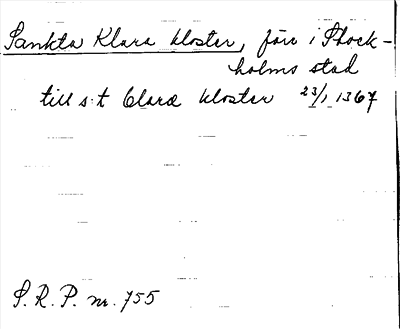 Sankta Klara kloster, förr i Stock-
holms stad
till s:t Claræ kloster 23/1 1367
S. R. P. nr. 755